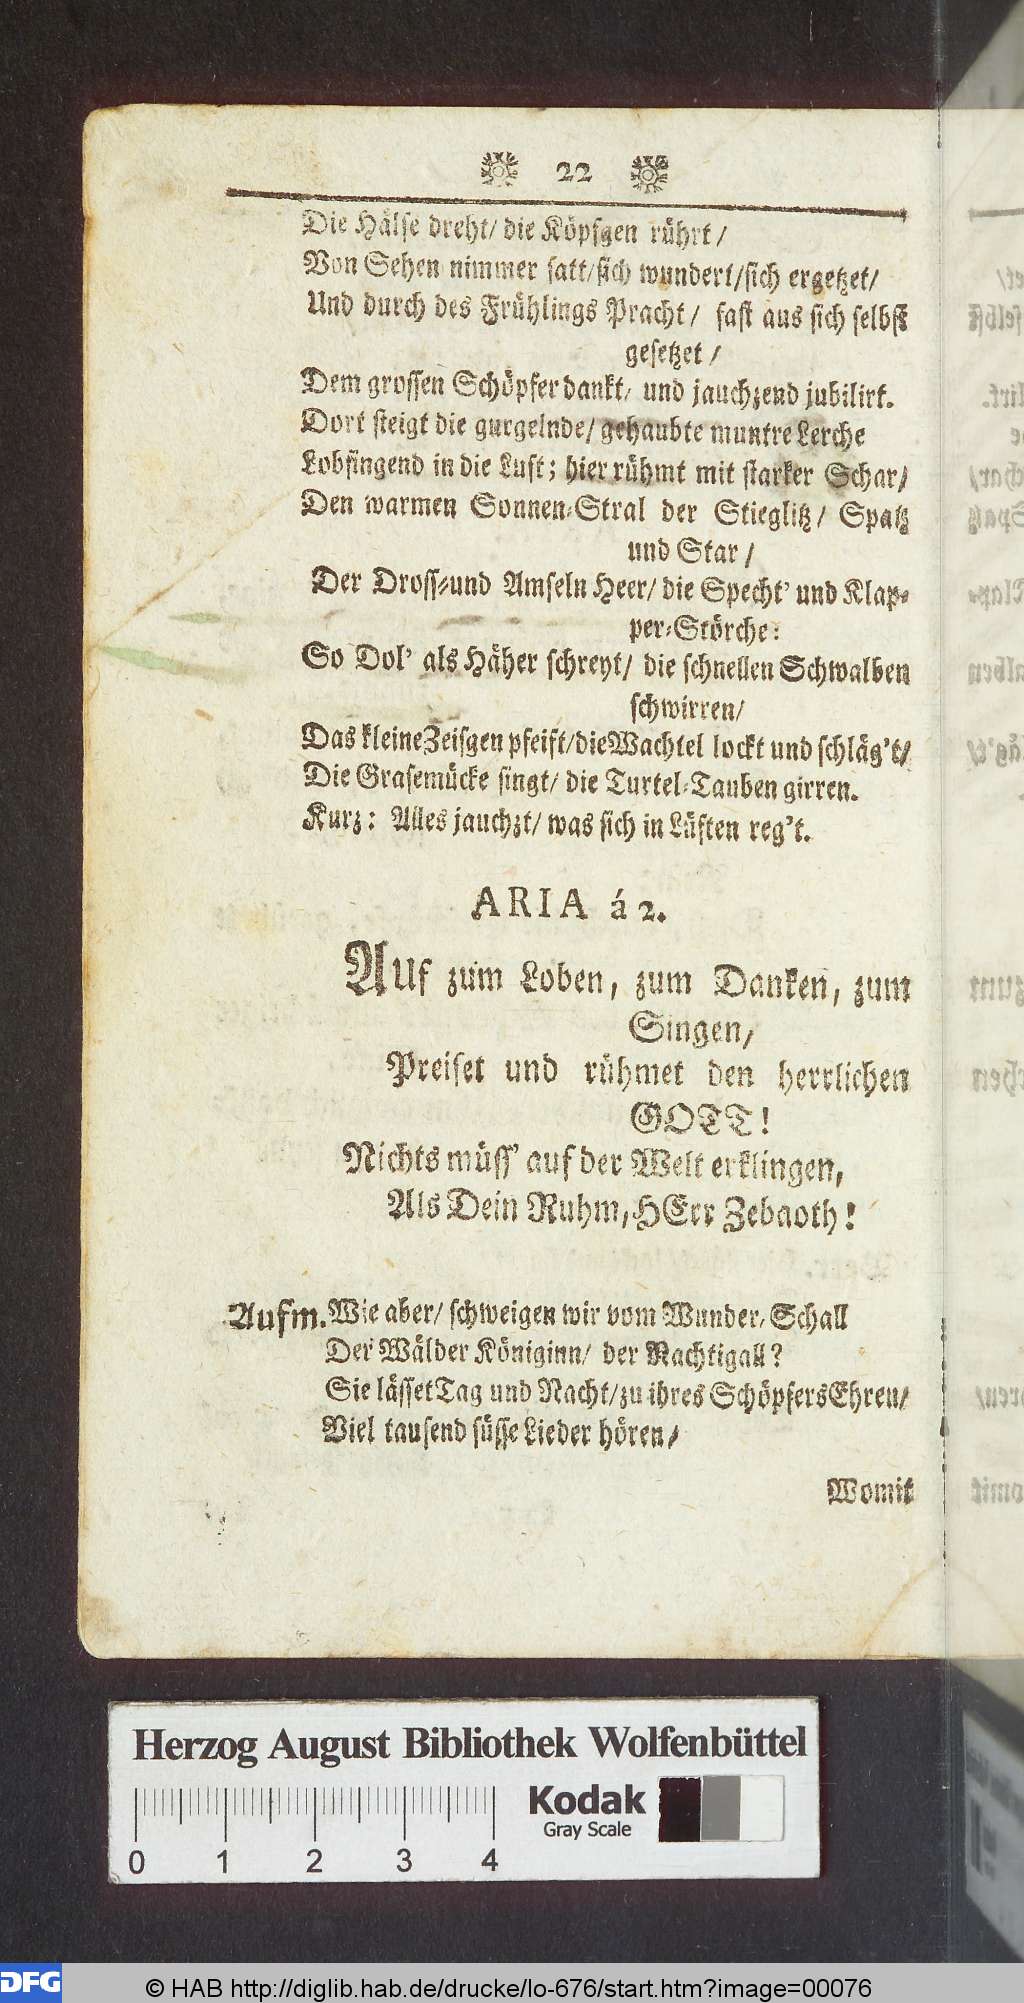 22
Die Hälse dreht/ die Köpfgen rührt/
Von Sehen nimmer satt/ sich wundert/ sich ergetzet/
Und durch des Frühlings Pracht/ fast aus sich selbst
gesetzet/
Dem grossen Schöpfer dankt/ und jauchzend jubilirt.
Dort steigt die gurgelnde/ gehaubte muntre Lerche
Lobsingend in die Luft; hier rühmt mit starker Schar/
Den warmen Sonnen-Stral der Stieglitz/ Spatz
und Star/
Der Dross- und Amseln Heer/ die Specht' und Klap-
per-Störche:
So Dol' als Häher schreyt/ die schnellen Schwalben
schwirren/
Das kleine Zeisgen pfeift/ die Wachtel lockt und schläg't/
Die Grasemücke singt/ die Turtel-Tauben girren.
Kurz: Alles jauchzt/ was sich in Lüften reg't.
ARIA á 2.
AUf zum Loben, zum Danken, zum
Singen,
Preiset und rühmet den herrlichen
GOTT!
Nichts müss' auf der Welt erklingen,
Als Dein Ruhm, HErr Zebaoth!
Aufm. Wie aber/ schweigen wir vom Wunder-Schall
Der Wälder Königinn/ der Nachtigall?
Sie lässet Tag und Nacht/ zu ihres Schöpfers Ehren/
Viel tausend süsse Lieder hören/
Womit
Herzog August Bibliothek Wolfenbüttel
Kodak
Gray Scale
0 1 2 3 4
DFG
© HAB http://diglib.hab.de/drucke/lo-676/start.htm?image=00076